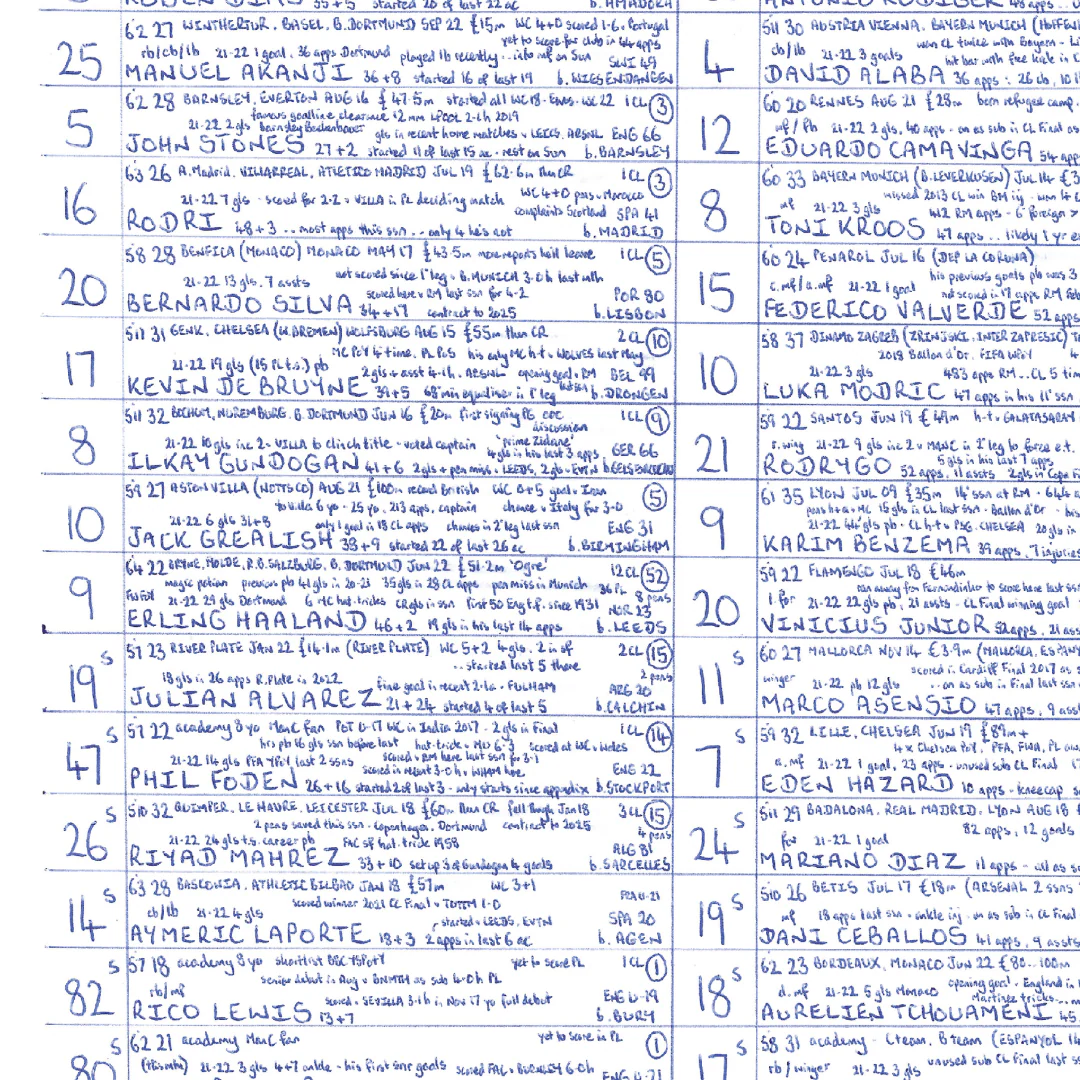 RUBEN DIAS 35+5 started 20 of last 22 ac b. AMADORA
25
62 27 WINTERTHUR, BASEL, B.DORTMUND SEP 22 £15m WC 4+0 scored 1-6 v Portugal
yet to score for club in 44 apps
rb/cb/lb 21-22 1 goal, 36 apps Dortmund played lb recently .. into mf on Sun SWI 49
MANUEL AKANJI 36+8 started 16 of last 19 b. WIESENDANGEN
5
62 28 BARNSLEY, EVERTON AUG 16 £47.5m started all WC18 - Euros - WC22 1CL 3
famous goalline clearance 12mm v LPOOL 2-1h 2019
21-22 2gls 'Barnsley Beckenbauer' gls in recent home matches v LEICS, ARSNL ENG 66
JOHN STONES 27+2 started 11 of last 15 ac - rest on Sun b. BARNSLEY
16
63 26 A.Madrid, VILLARREAL, ATLETICO MADRID JUL 19 £62.6m then CR 1CL 3
21-22 7gls - scored for 2-2 v VILLA in PL deciding match WC 4+0 pens v Morocco
complaints Scotland SPA 41
RODRI 48+3 .. most apps this ssn .. only 4 he's not b. MADRID
20
58 28 BENFICA (MONACO) MONACO MAY 17 £43.5m more reports he'll leave 1CL 5
not scored since 1st leg v B.MUNICH 3-0h last mth
21-22 13 gls, 7 assts scored here v RM last ssn for 4-2 POR 80
BERNARDO SILVA 34+17 contract to 2025 b. LISBON
17
511 31 GENK, CHELSEA (W.BREMEN) WOLFSBURG AUG 15 £55m then CR 2CL 10
MC PoY 4 times, PL PoS his only MC h-t v WOLVES last May
21-22 19 gls (15 PL t.s.) pb 2gls + asst 4-1h v ARSNL opening goal v RM BEL 99
KEVIN DE BRUYNE 39+5 68 min equaliser in 1st leg last ssn b. DRONGEN
8
511 32 BOCHUM, NUREMBURG, B.DORTMUND JUN 16 £20m first signing PG 1CL 9
discussion
21-22 10 gls inc 2 v VILLA to clinch title - voted captain 'prime Zidane' GER 66
4gls in his last 3 apps
ILKAY GUNDOGAN 41+6 2gls + pen miss v LEEDS, 2gls v EVTN b. GELSENKIRCHEN
10
59 27 ASTON VILLA (NOTTS CO) AUG 21 £100m record British WC 0+5 goal v Iran 5
to villa 6 yo - 25 yo, 213 apps, captain chance v Italy for 3-0
21-22 6 gls 31+8 only 1 goal in 18 CL apps chances in 2nd leg last ssn ENG 31
JACK GREALISH 38+9 started 22 of last 26 ac b. BIRMINGHAM
9
64 22 BRYNE, MOLDE, R.B.SALZBURG, B.DORTMUND JUN 22 £51.2m 'Ogre' 12CL 52
magic potion previous pb 41 gls in 20-23 35 gls in 28 CL apps pen miss in Munich 36 PL 8 pens
21-22 29 gls Dortmund 6 MC hat-tricks CR gls in ssn First 50 Eng t.f. since 1931 NOR 23
ERLING HAALAND 46+2 19 gls in his last 14 apps b. LEEDS
19 s
57 23 RIVER PLATE JAN 22 £14.1m (RIVER PLATE) WC 5+2 4gls, 2 in sf 2CL 15
.. started last 5 there 2 pens
18 gls in 26 apps R.Plate in 2022 fine goal in recent 2-1a v FULHAM ARG 20
JULIAN ALVAREZ 21+24 started 4 of last 5 b. CALCHIN
47 s
57 22 academy 8yo ManC fan PoT U-17 WC in India 2017 - 2 gls in Final 1CL 14
his pb 16 gls ssn before last hat-trick v MU 6-3 scored at WC v Wales
21-22 14 gls PFA YPoY last 2 ssns scored v RM here last ssn for 3-1
scored in recent 3-0h v WHAM here ENG 22
PHIL FODEN 26+16 started 2 of last 3 - only starts since appendix b. STOCKPORT
26 s
510 32 QUIMPER, LE HAVRE, LEICESTER JUL 18 £60m then CR fell though Jan 18 3CL 15
2 pens saved this ssn - Copenhagen, Dortmund contract to 2025 4 pens
21-22 24 gls t.s. career pb FAC sf hat-trick 1958 ALG 81
RIYAD MAHREZ 33+10 set up 3 of Gundogan 4 goals b. SARCELLES
14 s
63 28 BASCONIA, ATHLETIC BILBAO JAN 18 £57m WC 3+1 FRA U-21
scored winner 2021 LC Final v TOTTM 1-0
cb/lb 21-22 4 gls started v LEEDS, EVTN SPA 20
AYMERIC LAPORTE 18+3 2 apps in last 6 ac b. AGEN
82 s
57 18 academy 8yo shortlist BBC YSPoTY yet to score PL 1CL 1
senior debut in Aug v BNMTH as sub 4-0h PL
rb/mf scored v SEVILLA 3-1h in Nov 17 yo full debut ENG U-19
RICO LEWIS 13+7 b. BURY
80 s
62 21 academy ManC fan yet to score in PL 1
(this mth) 21-22 3 gls 4+7 ankle - his first snr goals scored FAC v BURNLEY 6-0h ENG U-21
4
511 30 AUSTRIA VIENNA, BAYERN MUNICH (HOFFEN
won CL twice with Bayern - Li
cb/lb 21-22 3 goals hit bar with free kick in C
DAVID ALABA 36 apps : 26 cb, 10 l
12
60 20 RENNES AUG 21 £28m born refugee camp.
mf/lb 21-22 2 gls, 40 apps - on as sub in CL Final as
EDUARDO CAMAVINGA 54 app
8
60 33 BAYERN MUNICH (B.LEVERKUSEN) JUL 14 £
missed 2013 CL win BM inj - won 4 C
mf 21-22 3 gls 412 RM apps - 6th foreign >
TONI KROOS 47 apps .. likely 1 yr e
15
60 24 PENAROL JUL 16 (DEP LA CORUNA)
his previous goals pb was 3
c.mf/a.mf 21-22 1 goal not scored in 17 apps RM Feb
FEDERICO VALVERDE 52 apps
10
58 37 DINAMO ZAGREB (ZRINJSKI, INTER ZAPRESIC) T
2018 Ballon d'Or, FIFA WPoY 4
21-22 3 gls 483 apps RM .. CL 5 tim
LUKA MODRIC 47 apps in his 11th ssn
21
59 22 SANTOS JUN 19 £49m h-t v GALATASARAY
r.wing 21-22 9 gls inc 2 v MANC in 2nd leg to force e.t.
5 gls in his last 7 apps
RODRYGO 52 apps, 11 assts 2 gls in Copa F
9
61 35 LYON JUL 09 £35m 14th ssn at RM - 646 a
pens h+a v MC 15 gls in CL last ssn - Ballon d'Or - his
21-22 44 gls pb - CL h-t v PSG, CHELSEA 20 gls in
KARIM BENZEMA 39 apps, 7 injuries
20
59 22 FLAMENGO JUL 18 £46m
ran away from Fernandinho to score here last ssn
l.for 21-22 22 gls pb, 21 assts - CL Final winning goal
VINICIUS JUNIOR 52 apps, 21 ass
11 s
60 27 MALLORCA NOV 14 £3.9m (MALLORCA, ESPANY
scored in Cardiff Final 2017 as s
winger 21-22 pb 12 gls .. on as sub in Final last ssn
MARCO ASENSIO 47 apps, 9 asst
7 s
59 32 LILLE, CHELSEA JUN 19 £89m+
4x Chelsea PoY, PFA, FWA, PL aw
a.mf 21-22 1 goal, 23 apps - unused sub CL Final
EDEN HAZARD 10 apps - kneecap s
24 s
511 29 BADALONA, REAL MADRID, LYON AUG 18
82 apps, 12 goals
for 21-22 1 goal
MARIANO DIAZ 11 apps - all as su
19 s
510 26 BETIS JUL 17 £18m (ARSENAL 2 ssns
mf 18 apps last ssn - ankle inj - on as sub in CL Final
DANI CEBALLOS 41 apps, 9 assts
18 s
62 23 BORDEAUX, MONACO JUN 22 £80..100m
opening goal v England in
d.mf 21-22 5 gls Monaco Martinez tricks ..m
AURELIEN TCHOUAMENI 45
17 s
58 31 academy - C team, B team (ESPANYOL 14
unused sub CL Final last ssn
rb/winger 21-22 3 gls